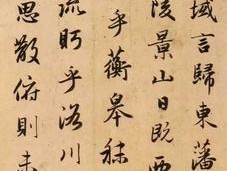 域言歸東藩
陵景山日既西
乎蘅皋秣
流眄乎洛川
思散俯則未